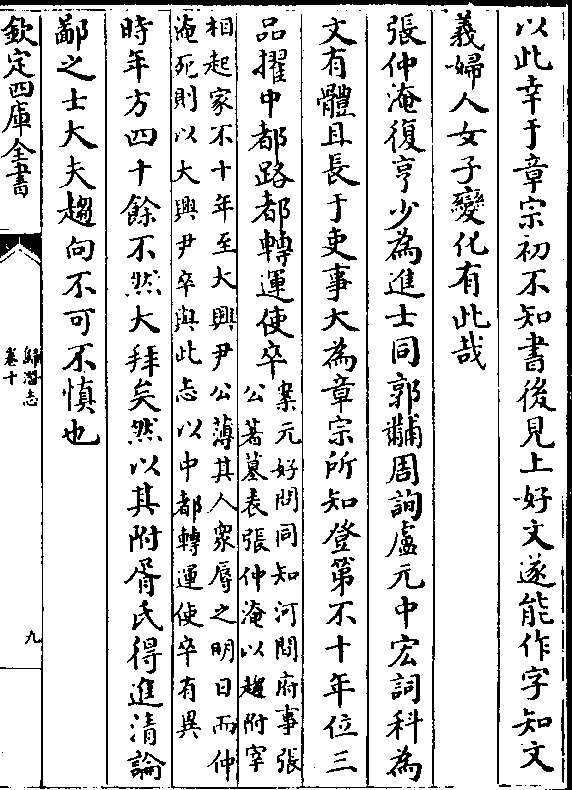 以此幸于章宗初不知書後見上好文遂能作字知文
義婦人女子變化有此哉
張仲淹復亨少為進士同郭黼周詢盧元中宏詞科為
文有體且長于吏事大為章宗所知登第不十年位三
品擢中都路都轉運使卒
案元好問同知河間府事張
公著墓表張仲淹以趨附宰
相起家不十年至大興尹公薄其人衆辱之明日而仲
淹死則以大興尹卒與此志以中都轉運使卒有異
時年方四十餘不然大拜矣然以其附胥氏得進清論
鄙之士大夫趨向不可不慎也
欽定四庫全書
歸潛志
卷十
九